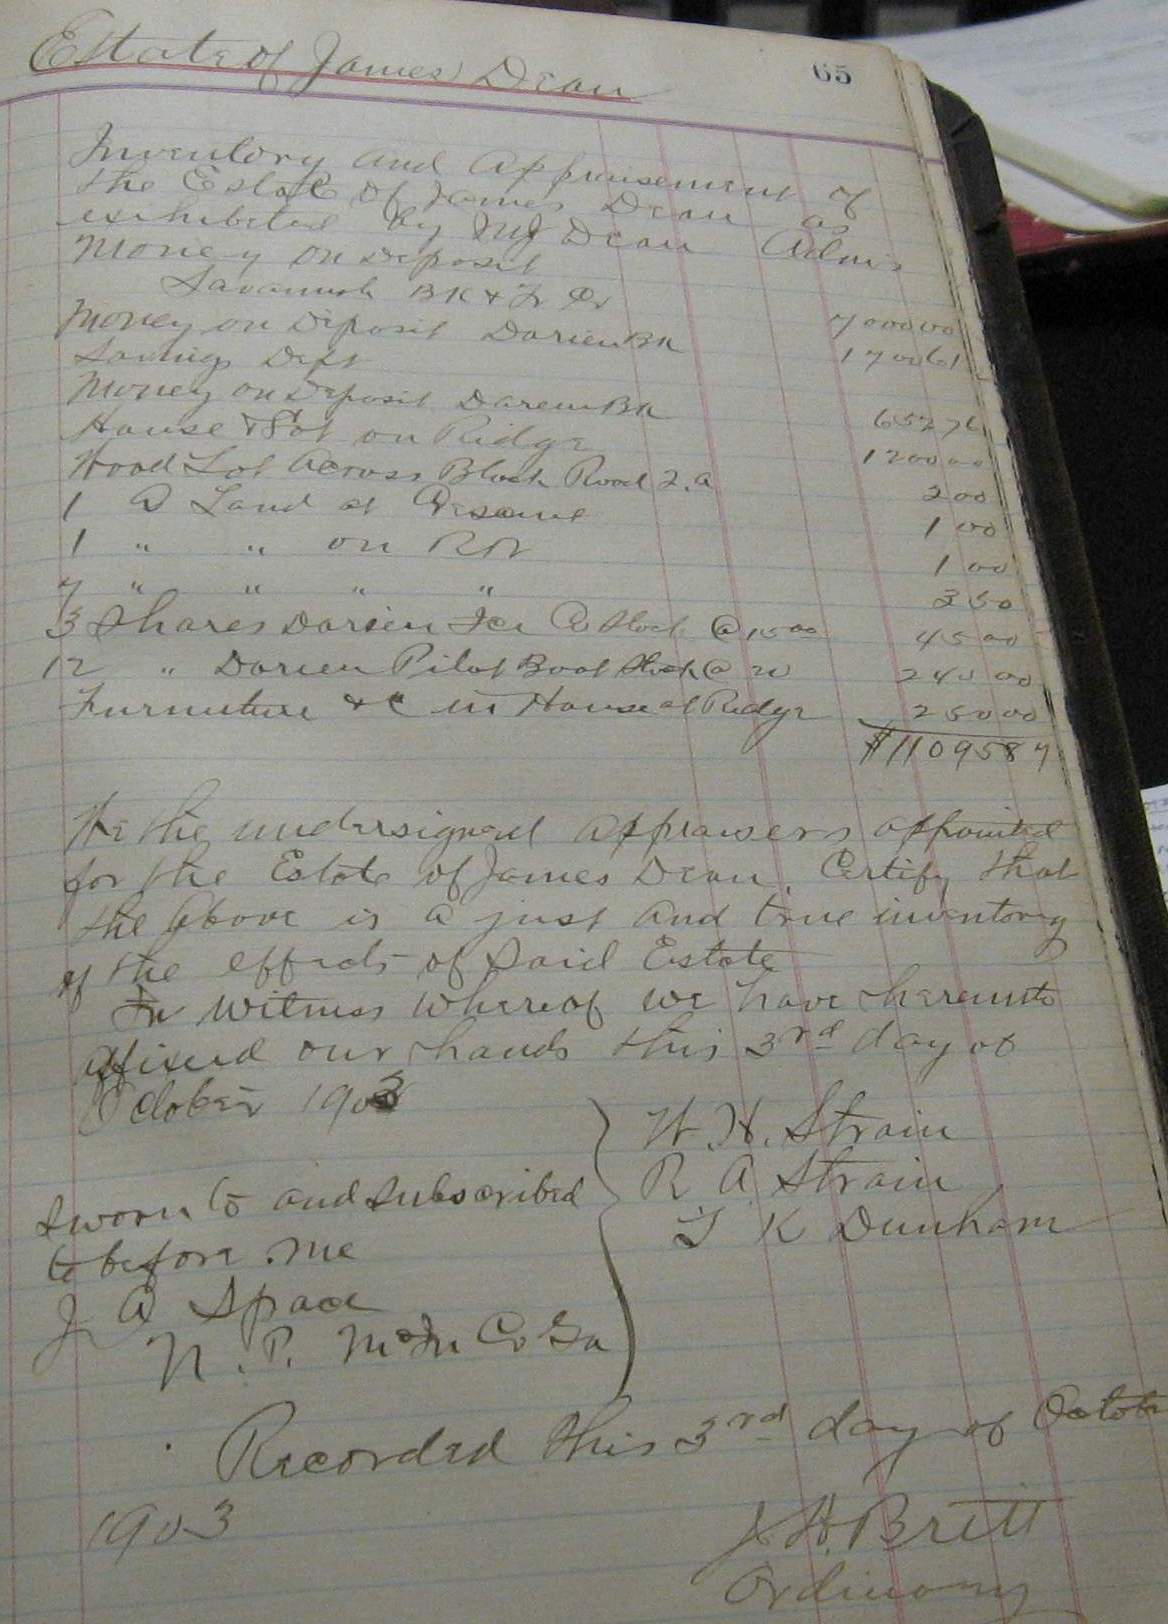 Estate of James Dean 65
Inventory and Appraisement of
the Estate of James Dean as
exhibited by MJ Dean Admr
Money on Deposit
Savannah BK & Tr Co 7000 00
Money on Deposit Darien Bk 1700 61
Savings Dept
Money on Deposit Darien Bk 657 76
House & Lot on Ridge 1200 00
Wood Lot Across Black Road 2. a 2 00
1 A Land at 1 00
1 " " on RR 1 00
7 " " " " 3 50
3 Shares Darien Ice Co Stock @ 15 00 45 00
12 " Darien Pilot Boat Stock @ 20 240 00
Furnuture &c in House at Ridge 250 00
$11095 87
We the undersigned appraisers appointed
for the Estate of James Dean, Certify that
the above is a just and true inventory
of the effects of said Estate
In Witness whereof we have hereunto
afixed our hands this 3rd day of
October 1903
W. H. Strain
R A Strain
T K Dunham
Sworn to and subscribed
to before me
J A Space
N. P. McIn Co Ga
Recorded this 3rd day of October
1903
J. H. Britt
Ordinary